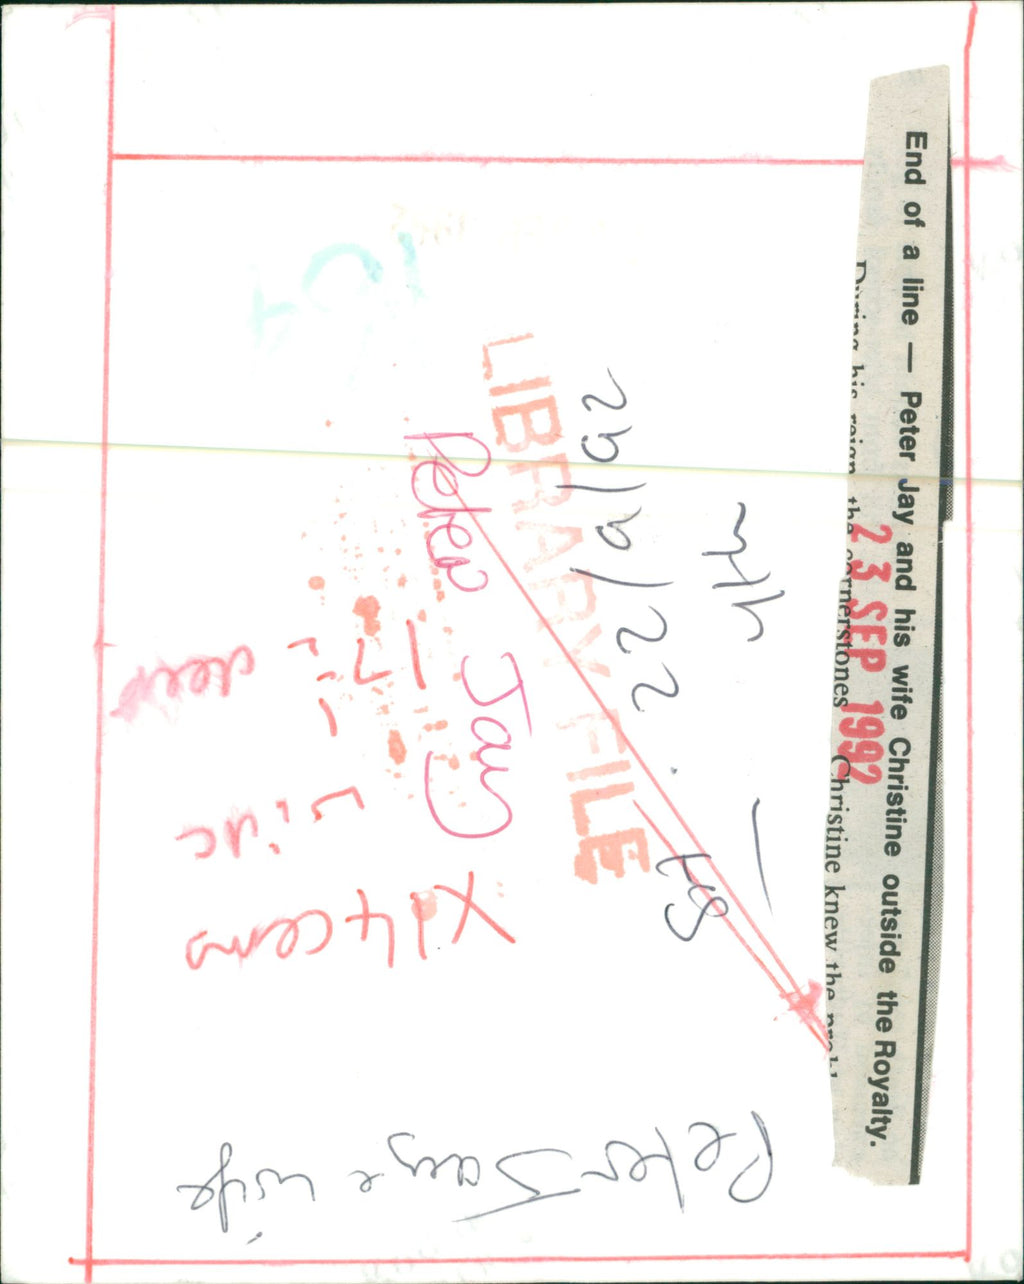 End of a line — Peter Jay and his wife Christine outside the Royalty.
During his reign the cornerstones Christine knew the
23 SEP 1992
4th
22/9/92
HS
LIBRARY FILE
Peter Jay
X14cems
deep
Peter Jay & wife